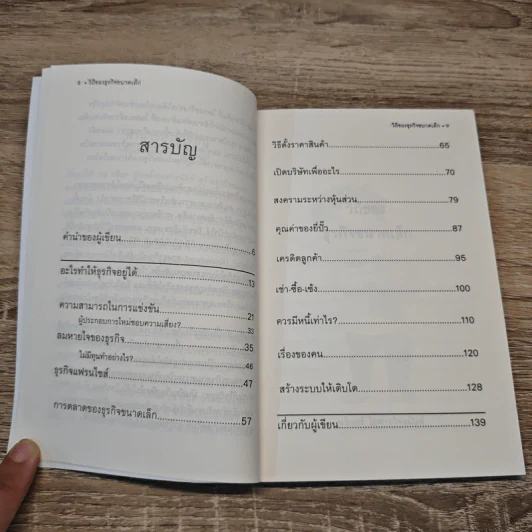 8 • วิถีของธุรกิจขนาดเล็ก
สารบัญ
คำนำของผู้เขียน 6
อะไรทำให้ธุรกิจอยู่ได้ 13
ความสามารถในการแข่งขัน 21
ผู้ประกอบการใหม่ชอบความเสี่ยง? 33
ลมหายใจของธุรกิจ 35
ไม่มีทุนทำอย่างไร? 46
ธุรกิจแฟรนไชส์ 47
การตลาดของธุรกิจขนาดเล็ก 57
วิถีของธุรกิจขนาดเล็ก • 9
วิธีตั้งราคาสินค้า 65
เปิดบริษัทเพื่ออะไร 70
สงครามระหว่างหุ้นส่วน 79
คุณค่าของยี่ปั๊ว 87
เครดิตลูกค้า 95
เช่า-ซื้อ-เซ้ง 100
ควรมีหนี้เท่าไร? 110
เรื่องของคน 120
สร้างระบบให้เติบโต 128
เกี่ยวกับผู้เขียน 139